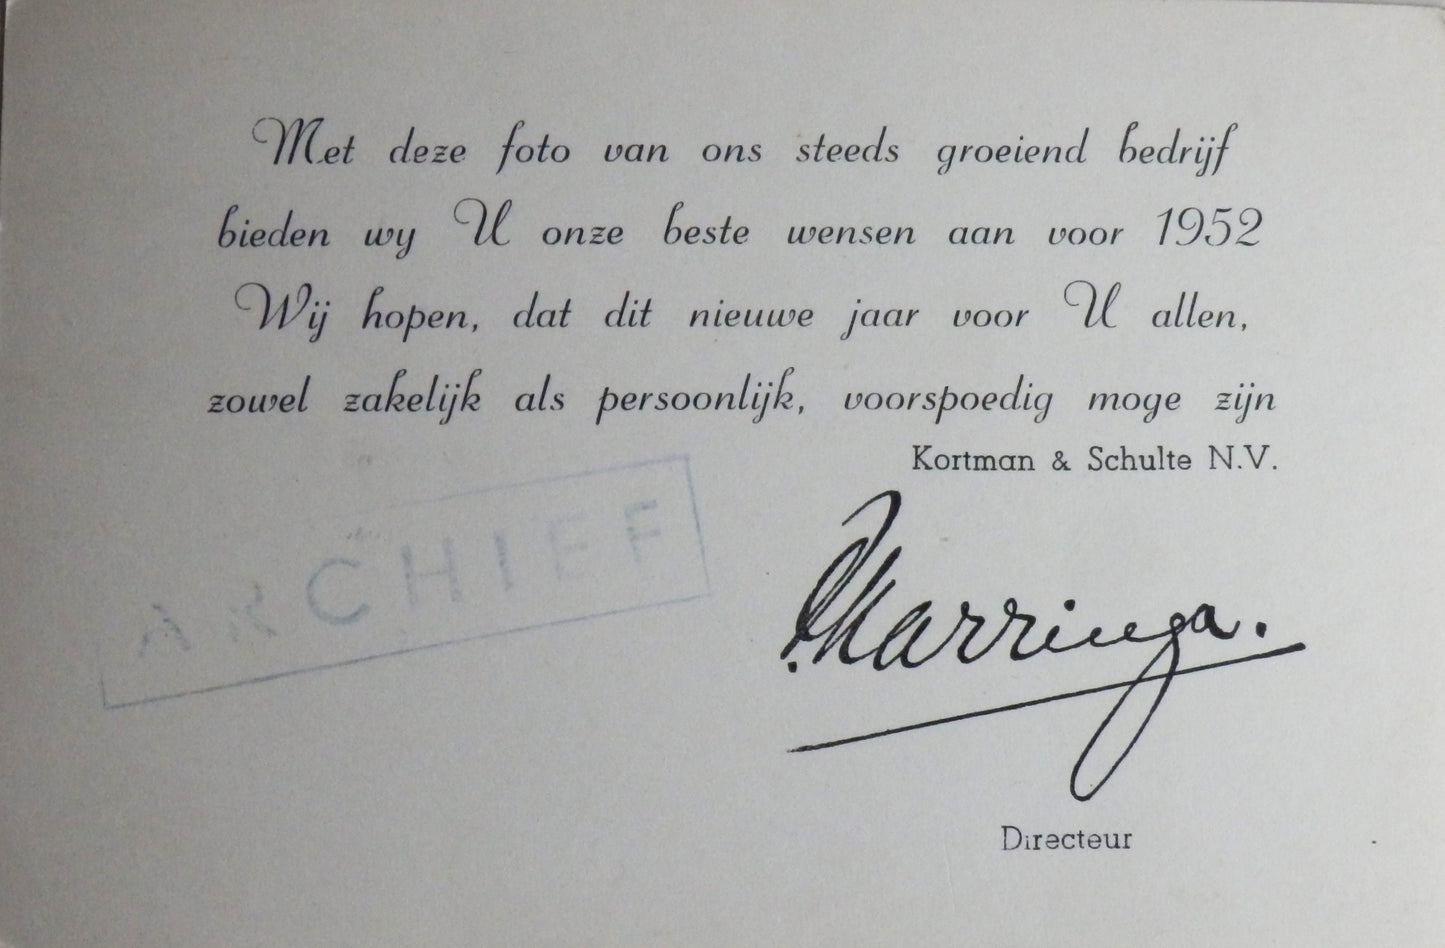 Met deze foto van ons steeds groeiend bedrijf
bieden wy U onze beste wensen aan voor 1952
Wij hopen, dat dit nieuwe jaar voor U allen,
zowel zakelijk als persoonlijk, voorspoedig moge zijn
Kortman & Schulte N.V.
ARCHIEF
Marringa.
Directeur